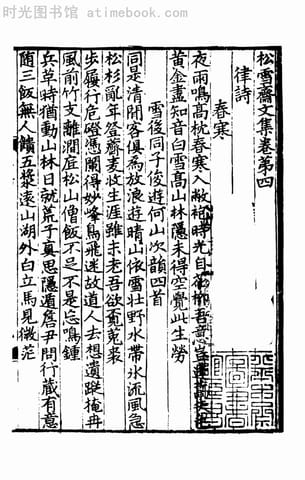 时光图书馆 atimebook.com
松雪齋文集卷第四
律詩
春寒
夜雨鳴高枕春寒入敝袍時光自
黃金盡知音白雪高山林隱未得空覺此生勞
雪後同子俊遊何山次韻四首
同是清閒客俱為放浪遊晴山依雪壯野水帶氷流風急
松杉亂年登麥收生涯雖未老吾欲菟裘
步屧行危磴憑闌得妙峯鳥飛迷故道人去想遺蹤掩冉
風前竹支離澗底松山僧飯不足不是忘鳴鍾
兵革時猶動山林日就荒子真思隱遁詹尹問行藏有意
隨三飯無人饋五漿滄山湖外白立馬見微茫